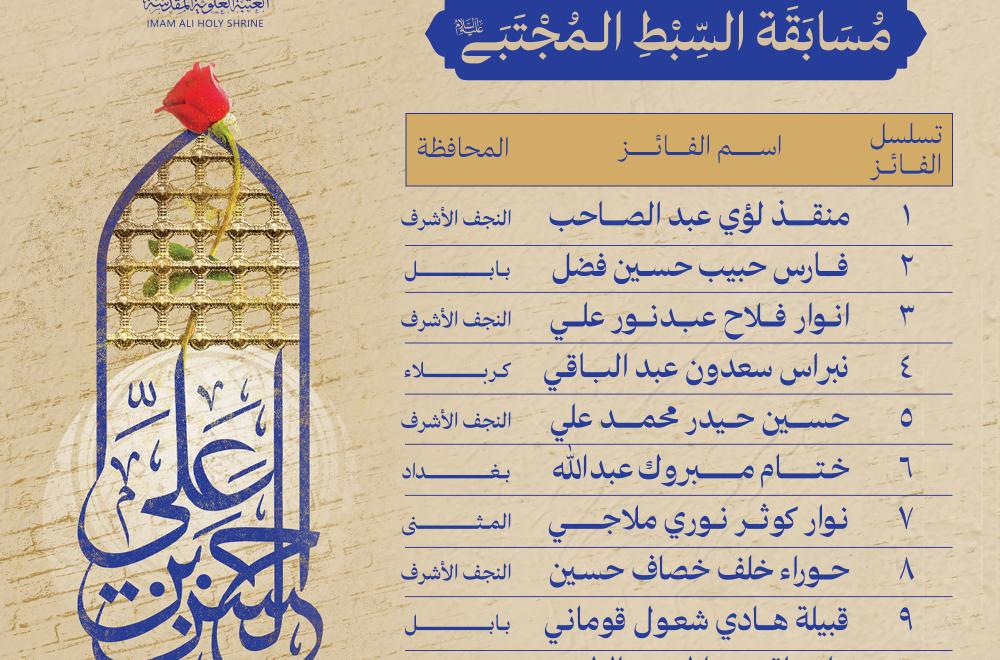 العتبة العلوية المقدسة
IMAM ALI HOLY SHRINE
مُسَابَقَة السِّبْطِ المُجْتَبَى عليه السلام
تسلسل الفائز اسم الفائز المحافظة
١ منقذ لؤي عبد الصاحب النجف الأشرف
٢ فارس حبيب حسين فضل بابل
٣ انوار فلاح عبدنور علي النجف الأشرف
٤ نبراس سعدون عبد الباقي كربلاء
٥ حسين حيدر محمد علي النجف الأشرف
٦ ختام مبروك عبدالله بغداد
٧ نوار كوثر نوري ملاجي المثنى
٨ حوراء خلف خصاف حسين النجف الأشرف
٩ قبيلة هادي شعول قوماني بابل
حسن بن علي